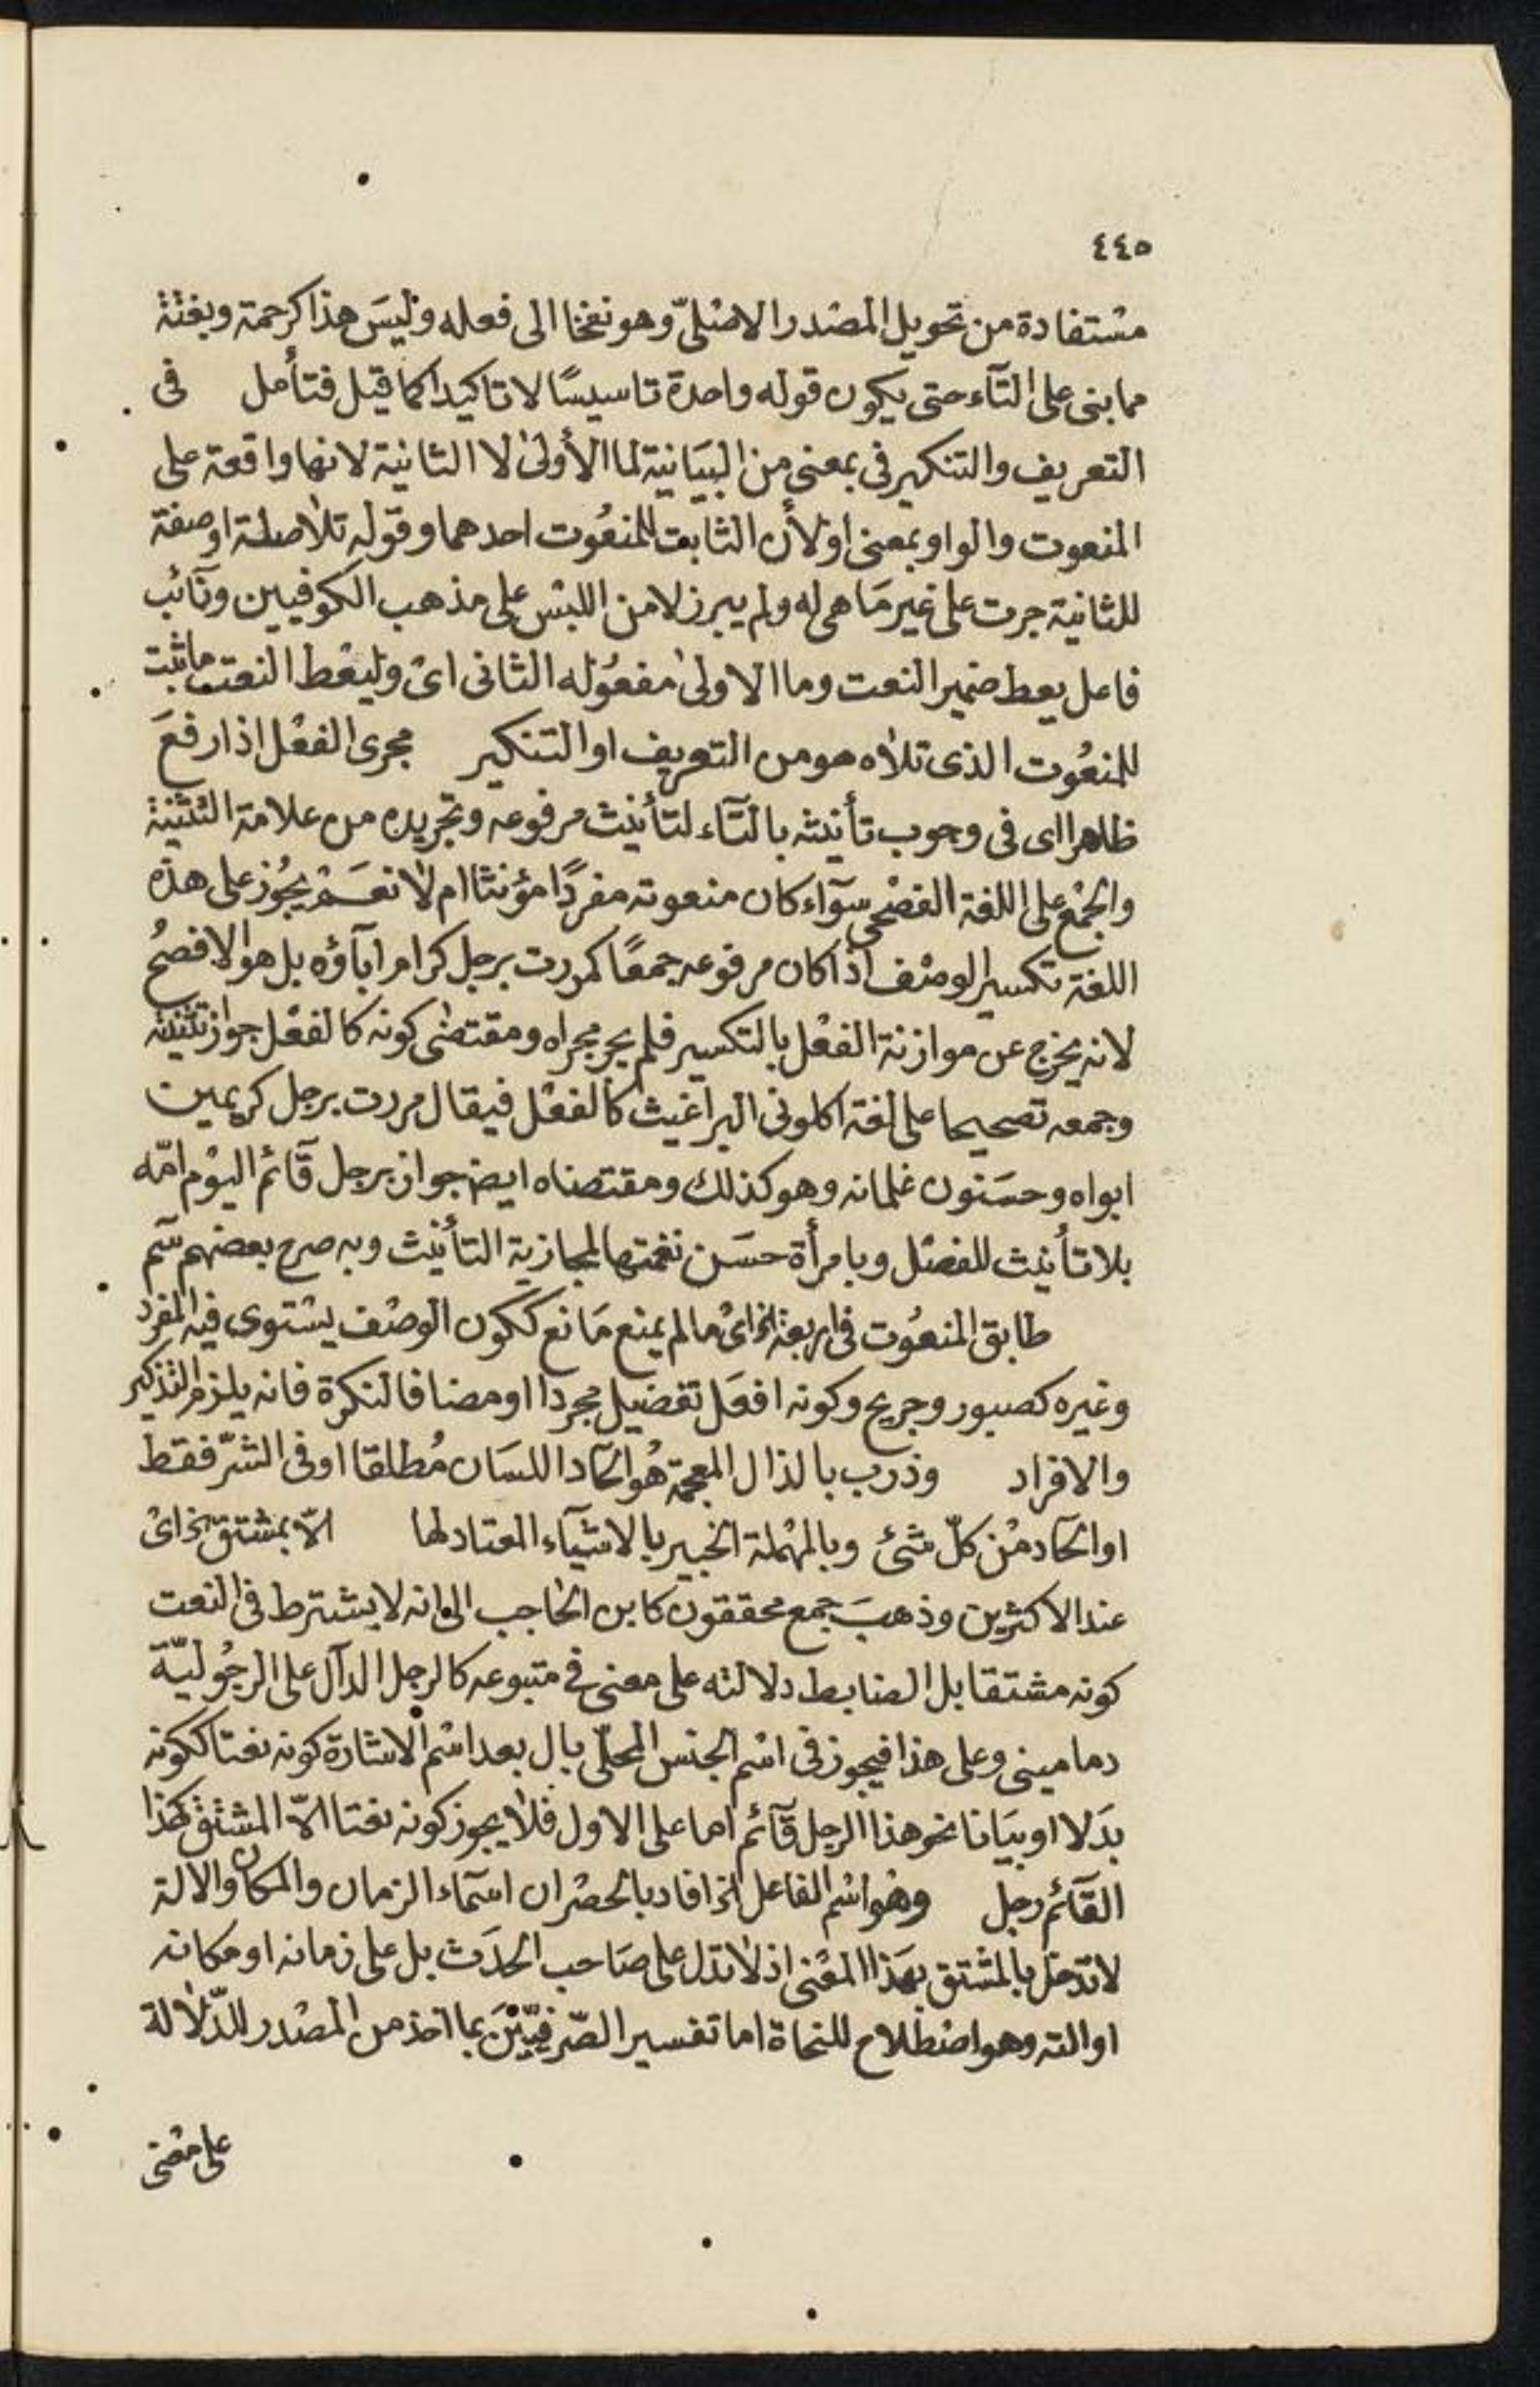 ٤٤٥
مستفادة من تحويل المصدر الاصلىّ وهو نفخا الى فعله وليسَ هذا كرحمة وبغتة
مما بنى على التآء حتى يكون قوله واحدة تاسيسًا لا تاكيدا كما قيل فتأمل في
التعريف والتنكير فى بمعنى من البيَانية لما الأولىٰ لا الثانية لانها واقعة على
المنعوت والواو بمعنى او لأن الثابت للمنعُوت احدهما وقوله تلا صلة او صفة
للثانية جرت على غير مَا هى له ولم يبرز لامن اللبس على مذهب الكوفيين ونآئب
فاعل يعط ضمير النعت وما الاولىٰ مفعُوله الثانى اىْ وليعْط النعت ما ثبت
للمنعُوت الذى تلاه هو من التعريف او التنكير مجرى الفعْل اذا رفعَ
ظاهرا اى فى وجوب تأنيثه بالتآء لتأنيث مرفوعه وتجريده من علامة التثنية
والجمْع على اللغة الفصْحى سوآء كان منعوته مفردًا مؤنثا ام لا نعَمْ يجُوز على هذه
اللغة تكسير الوصْف اذا كان مرفوعه جمعًا كمررت برجل كرام ابآؤه بل هو الافصحُ
لانه يخرج عن موازنة الفعْل بالتكسير فلم يجر مجراه ومقتضىٰ كونه كالفعْل جواز تثنيته
وجمعه تصحيحا على لغة اكلونى البراغيث كالفعْل فيقال مررت برجل كريمين
ابواه وحسَنون غلمانه وهو كذلك ومقتضاه ايضا جواز برجل قآئم اليوْم امّه
بلا تأنيث للفصْل وبامرأة حسَن نغمتها لمجازية التأنيث وبه صرح بعضهم سم
طابق المنعُوت فى اربعة الخ اىْ ما لم يمنع مَانع ككون الوصْف يسْتوى فيه المفرد
وغيره كصبور وجريح وكونه افعَل تفضيل مجردا او مضافا لنكرة فانه يلزم التذكير
والافراد وذرب بالذال المعجمة هُو الحآد اللسَان مُطلقا او فى الشّر فقط
او الحآد مْن كلّ شئ وبالمهْملة الخبير بالاشيآء المعتاد لها الاّ بمشتق الخ اىْ
عند الاكثرين وذهبَ جمع محققون كابن الحاجب الى انه لا يشترط فى النعت
كونه مشتقا بل الضابط دلالته على معنى فى متبوعه كالرجل الدآل على الرجُوليّة
دمامينى وعلى هذا فيجوز فى اسْم الجنس المحلّى بال بعد اسْم الاشارة كونه نعتا ككونه
بدَلا او بيَانا نحو هذا الرجل قآئم اما على الاول فلا يجوز كونه نعتا الاّ المشتق كهذا
القآئم رجل وهُو اسْم الفاعل الخ افاد بالحصْر ان اسمآء الزمان والمكان والالة
لا تدخل بالمشتق بهَذا المعْنى اذ لا تدل على صَاحب الحدَث بل على زمانه او مكانه
او الته وهو اصْطلاح للنحاة اما تفسير الصّرفيّيْنَ بما اخذ من المصْدر للدّلالة
على معْنى